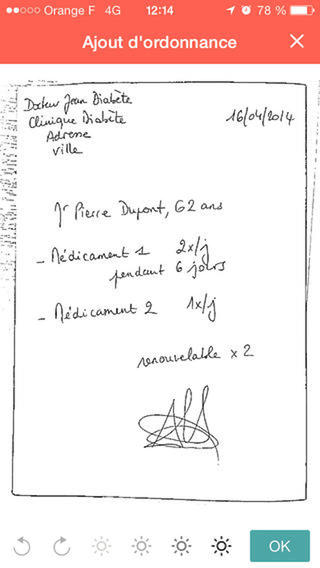 Orange F 4G 12:14 78 %
Ajout d'ordonnance
Docteur Jean Diabète
Clinique Diabète
16/04/2014
Adresse
Ville
Mr Pierre Dupont, 62 ans
- Médicament 1 2x/j
pendant 6 jours
- Médicament 2 1x/j
renouvelable x 2
OK